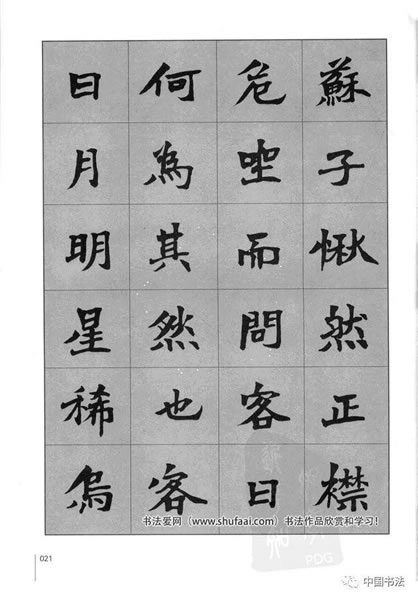 蘇子愀然正襟
危唑而問客曰
何為其然也客
日月明星稀烏
书法爱网（www.shufaai.com）书法作品欣赏和学习！
021
PDG
中国书法